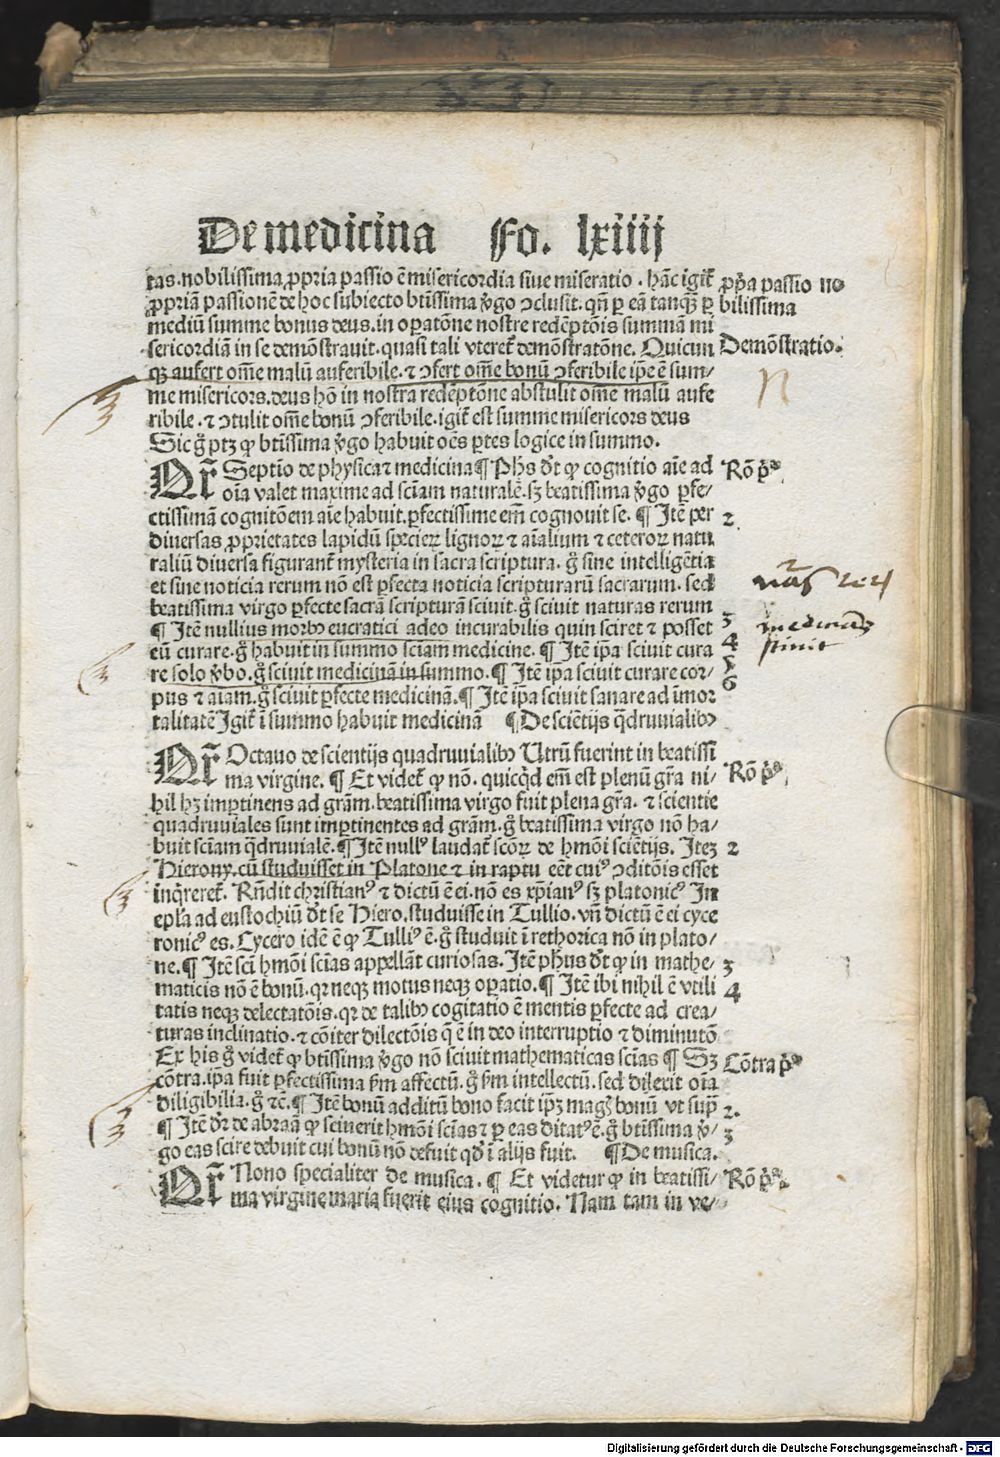 De medicina Fo. lxiiij
tas. nobilissima ꝓpria passio ē misericordia siue miseratio. hāc igit̄
ꝓpriā passionē de hoc subiecto btissima v̓go ꝯclusit. qn̄ ꝑ eā tanqꝫ ꝑ
mediū summe bonus deus. in oꝑatōne nostre redēptōis summā mi
sericordiā in se demōstrauit. quasi tali vteret̄ demōstratōne. Quicun
qꝫ aufert om̄e malū auferibile. ⁊ ꝯfert om̄e bonū ꝯferibile ip̄e ē sum/
me misericors. deus hō in nostra redēptōne abstulit om̄e malū aufe
ribile. ⁊ ꝯtulit om̄e bonū ꝯferibile. igit̄ est summe misericors deus
Sic g̊ ptꝫ ꝙ btissima v̓go habuit oēs ꝑtes logice in summo.
ꝓp̓a passio no
bilissima
Demōstratio.
Qr̄ Septīo de physica ⁊ medicina ¶ Ph̓s dt̄ ꝙ cognitio aīe ad
oīa valet maxime ad sciām naturalē. sꝫ beatissima v̓go ꝑfe/
ctissimā cognitōem aīe habuit. ꝑfectissime em̄ cognouit se. ¶ Itē per
diuersas ꝓprietates lapidū specieꝝ lignoꝝ ⁊ aīalium ⁊ ceteroꝝ natu
raliū diuersa figurant̄ mysteria in sacra scriptura. g̊ sine intelligētia
et sine noticia rerum nō est ꝑfecta noticia scripturarū sacrarum. sed
beatissima virgo ꝑfecte sacrā scripturā sciuit. g̊ sciuit naturas rerum
¶ Itē nullius morbꝰ eucratici adeo incurabilis quin sciret ⁊ posset
eū curare. g̊ habuit in summo sciam medicine. ¶ Itē ip̄a sciuit cura
re solo v̓bo. g̊ sciuit medicinā in summo. ¶ Itē ip̄a sciuit curare cor/
pus ⁊ aīam. g̊ sciuit ꝑfecte medicinā. ¶ Itē ip̄a sciuit sanare ad īmor
talitatē Igit̄ ī summo habuit medicinā ¶ De sciētijs q̄druuialibꝰ
Rō p̓ᵃ
2
3
4
5
6
Qr̄ Octauo de scientijs quadruuialibꝰ Utrū fuerint in beatissi
ma virgine. ¶ Et videt̄ ꝙ nō. quicq̄d em̄ est plenū gr̄a ni/
hil hꝫ imꝑtinens ad grām. beatissima virgo fuit plena gr̄a. ⁊ scientie
quadruuiales sunt imꝑtinentes ad grām. g̊ beatissima virgo nō ha/
buit sciam q̄druuialē. ¶ Itē nullꝰ laudat̄ scōꝝ de hmōi sciētijs. Iteꝫ
Hierony. cū studuisset in Platone ⁊ in raptu eēt cuiꝰ ꝯditōis esset
inq̄reret̄. Rn̄dit christianꝰ ⁊ dictū ē ei. nō es xp̄ianꝰ sꝫ platonicꝰ In
epl̄a ad eustochiū dt̄ se Hiero. studuisse in Tullio. vn̄ dictū ē ei cyce
ronicꝰ es. Cycero idē ē ꝙ Tulliꝰ ē. g̊ studuit ī rethorica nō in plato/
ne. ¶ Itē scī hmōi sciās appellāt curiosas. Itē ph̓us dt̄ ꝙ in mathe/
maticis nō ē bonū. qr neqꝫ motus neqꝫ oꝑatio. ¶ Itē ibi nihil ē vtili
tatis neqꝫ delectatōis. qr de talibꝰ cogitatio ē mentis ꝑfecte ad crea/
turas inclinatio. ⁊ cōiter dilectōis q̄ ē in deo interruptio ⁊ diminutō
Ex his g̊ videt̄ ꝙ btissima v̓go nō sciuit mathematicas scias ¶ Sꝫ
cōtra. ip̄a fuit ꝑfectissima ẜm affectū. g̊ ẜm intellectū. sed dilexit oīa
diligibilia. g̊ ⁊c̄. ¶ Itē bonū additū bono facit ip̄ꝫ magꝭ bonū vt sup̄
¶ Itē dr̄ de abraā ꝙ sciuerit hmōi sciās ⁊ ꝑ eas ditatꝰ ē. g̊ btissima v̓/
go eas scire debuit cui bonū nō defuit qd̓ ī alijs fuit. ¶ De musica.
Rō p̓ᵃ
2
3
4
Cōtra p̓ᵒ
2.
3
Qr̄ Nono specialiter de musica. ¶ Et videtur ꝙ in beatissi/
ma virgine maria fuerit eius cognitio. Nam tam in ve/
Rō p̓ᵃ.
Digitalisierung gefördert durch die Deutsche Forschungsgemeinschaft - DFG